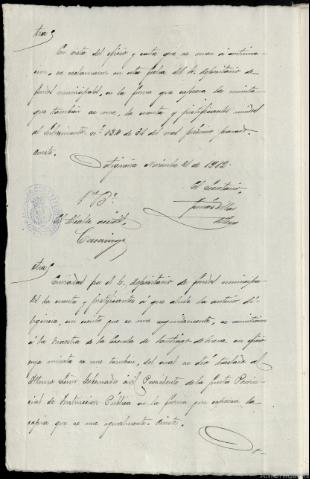 otra
En vista del oficio y cuenta que se unen á continua-
cion, se reclamaron en esta fecha del S. depositario de
fondos municipales, en la forma que expresa la minuta
que tambien se une, la cuenta y justificantes unidos
al libramiento nº 134 de 31 del mes próximo pasado.
Certº
Noviembre 21 de 1902.
Vº Bº
El Secretario
El Alcalde accidtal
otra
Enviados por el S. depositario de fondos municipa-
les la cuenta y justificantes á que alude la anterior di-
ligencia, en union que se une seguidamente, se remitieron
á la maestra de la Escuela de Santiago de en oficio
cuya minuta se une tambien, del cual se dió traslado al
Ilustre Señor Gobernador civil Presidente de la Junta Provin-
cial de Instruccion Pública en la forma que expresa la
copia que se une igualmente. Certº